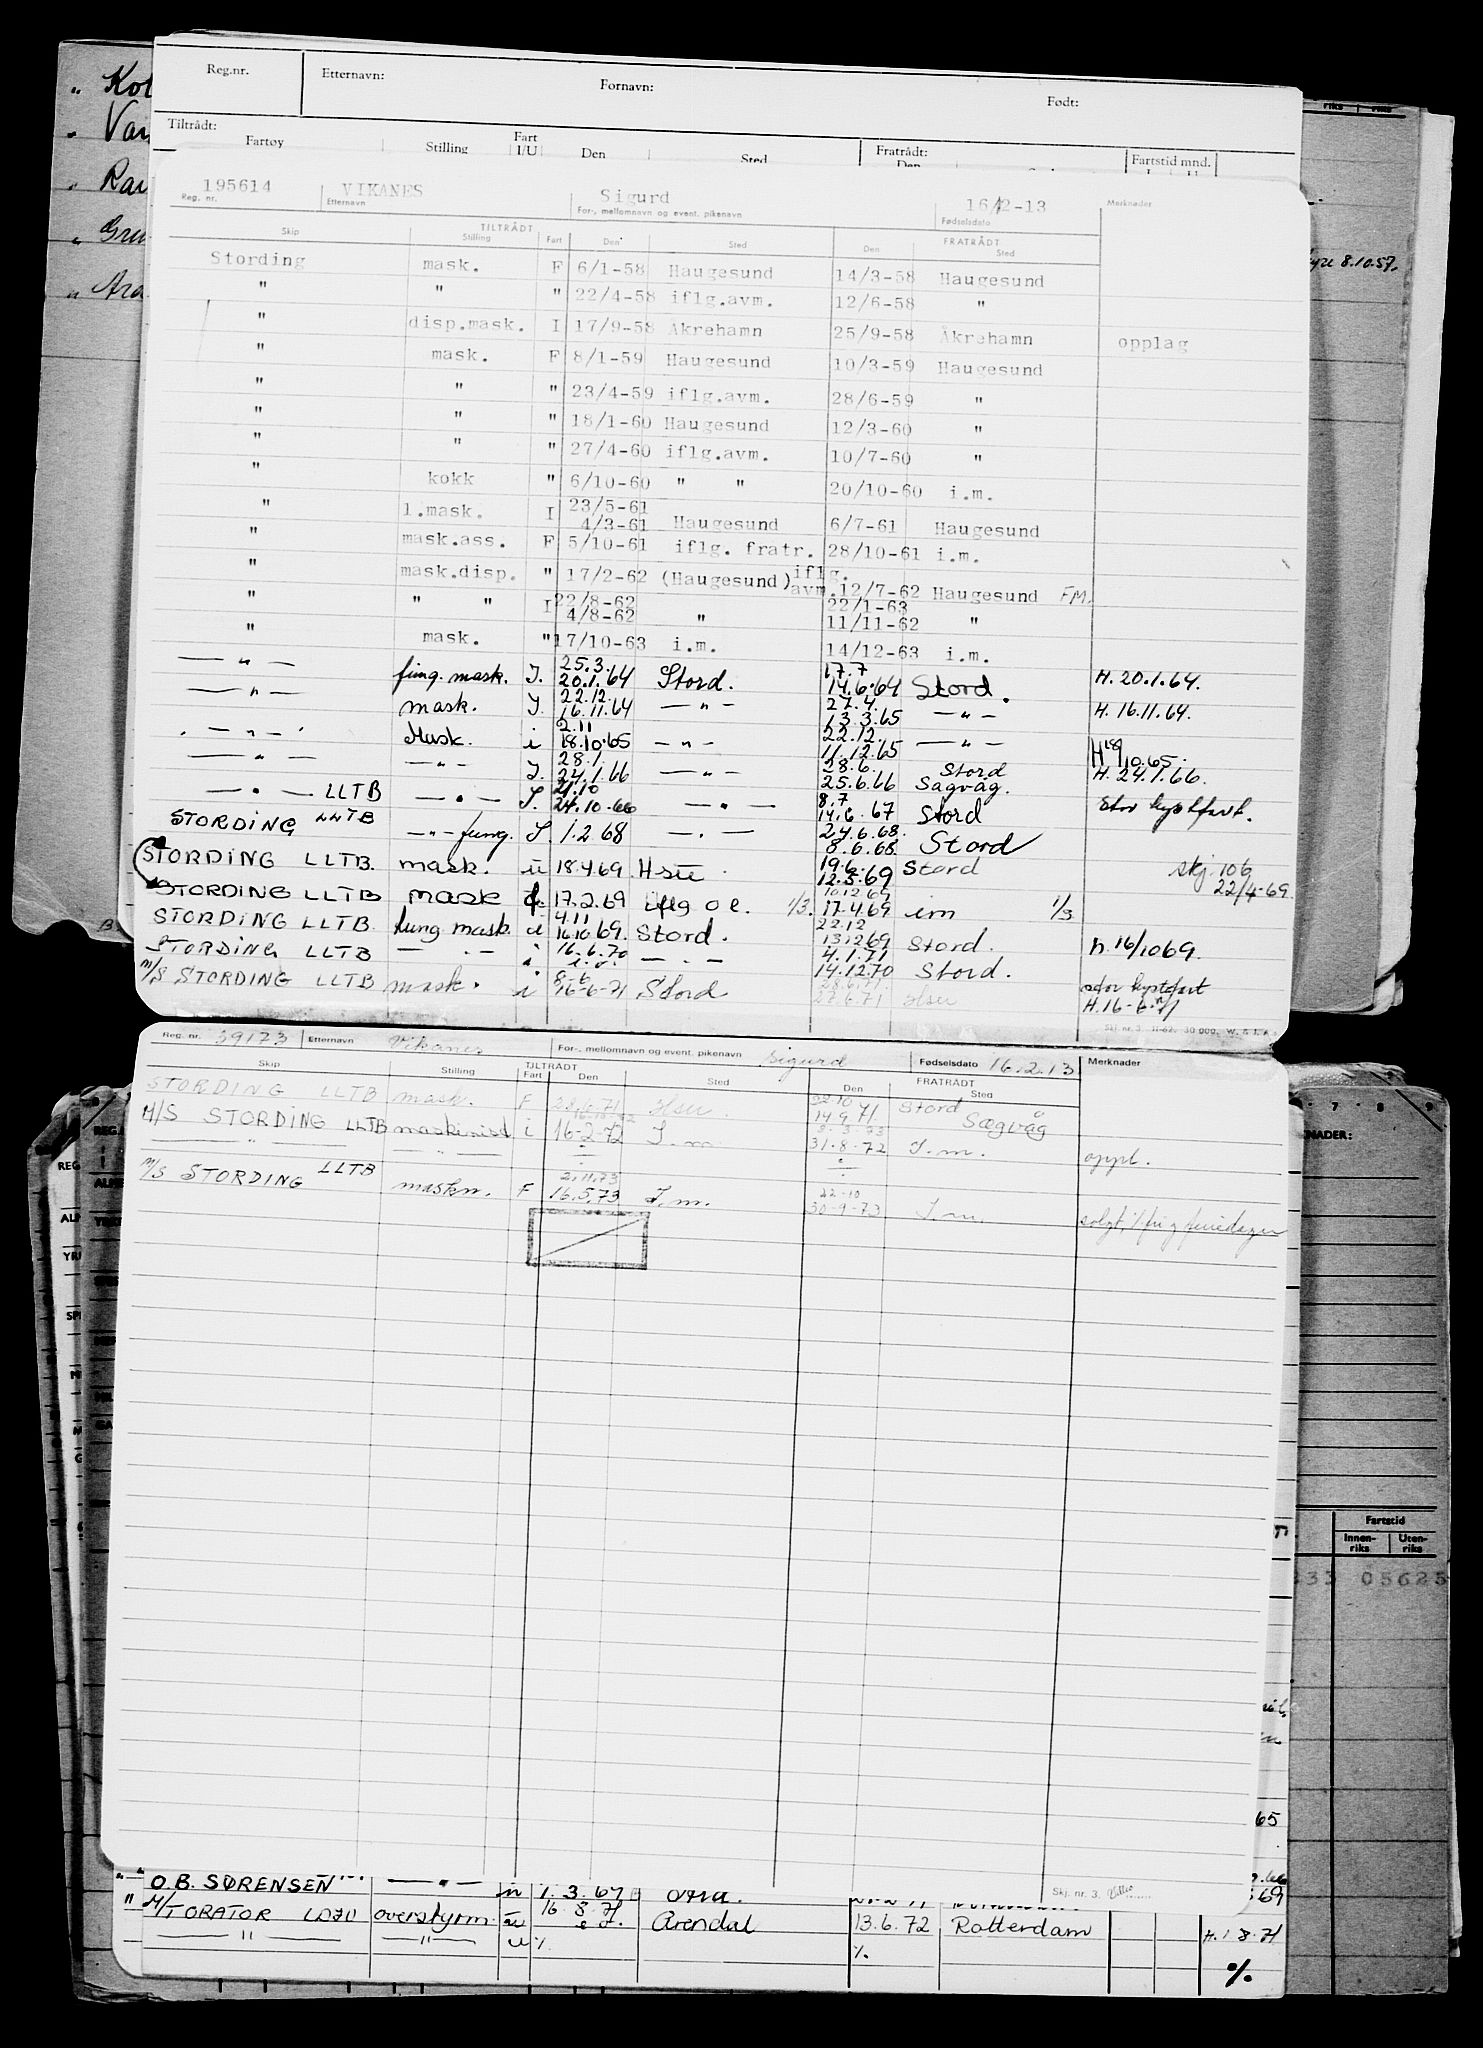 Reg.nr. Etternavn: Fornavn: Født:
Tiltrådt: Fartøy Stilling Fart I/U Den Sted Fratrådt: Den Fartstid mnd.
195614 VIKANES Sigurd 16/2-13
Reg. nr. Etternavn For-, mellomnavn og event. pikenavn Fødselsdato Merknader
TILTRÅDT FRATRÅDT
Skip Stilling Fart Den Sted Den Sted
Stording mask. F 6/1-58 Haugesund 14/3-58 Haugesund
" " " 22/4-58 iflg.avm. 12/6-58 "
" disp.mask. I 17/9-58 Åkrehamn 25/9-58 Åkrehamn opplag
" mask. F 8/1-59 Haugesund 10/3-59 Haugesund
" " " 23/4-59 iflg.avm. 28/6-59 "
" " " 18/1-60 Haugesund 12/3-60 "
" " " 27/4-60 iflg.avm. 10/7-60 "
" kokk " 6/10-60 " " 20/10-60 i.m.
" 1.mask. I 23/5-61 4/3-61 Haugesund 6/7-61 Haugesund
" mask.ass. F 5/10-61 iflg. fratr. 28/10-61 i.m.
" mask.disp. " 17/2-62 (Haugesund) iflg. avm. 12/7-62 Haugesund FM.
" " " I 22/8-62 4/8-62 " 22/1-63 11/11-62 "
" mask. " 17/10-63 i.m. 14/12-63 i.m.
— " — fung. mask. I. 25.3. 20.1.64 Stord. 17.7 14.6.64 Stord. H. 20.1.64.
— " — mask. I. 22.12. 16.11.64 — " — 27.4. 13.3.65 — " — H. 16.11.64.
— " — Mask. i 2.11 18.10.65 — " — 22.12. 11.12.65 — " — H 18/10.65.
— " — — " — I. 28.1. 24.1.66 — " — 28.6. 25.6.66 Stord Sagvåg. H. 24.1.66.
— " — LLTB — " — I. 21.10 24.10.66 — " — 8.7 14.6.67 Stord Stor kystfart.
STORDING LLTB — " — fung. I. 1.2 68 — " — 24.6.68. 8.6.68 Stord
STORDING LLTB. mask. u 18.4.69 Hsu. 19.6. 12.5.69 Stord skj. 106 22/4-69.
STORDING LLTB mask f. 17.2.69 iflg o e. 1/3. 17.4.69 im 1/3
STORDING LLTB. fung mask. 4.11 16.10 69. Stord. 10.12.69 22.12 13.12 69 Stord. h. 16/10 69.
STORDING LLTB — " — i 16.6.70 — " — 4.1.71 14.12.70 Stord. stor kystfart
M/S STORDING LLTB mask. i 8-6 16-6-71 Stord 28.6.71. 27.6.71 Hsu H. 16-6-71
Skj. nr. 3 11-62. 30 000.
Reg. nr. 39173 Etternavn Vikanes For-, mellomnavn og event. pikenavn Sigurd Fødselsdato 16.2.13 Merknader
TILTRÅDT FRATRÅDT
Skip Stilling Fart Den Sted Den Sted
STORDING LLTB mask. F 28.6.71 Hsu. 22.10 14.9.71. Stord
M/S STORDING LLTB maskinist i 16-2-72 I.m. Sægvåg
— " — — " — 31.8.72 I.m. oppl.
M/S STORDING LLTB maskn. F 2.11.73 16.5.73 I.m. 22-10 30-9-73 I.m. solgt,
Skj. nr. 3.
O.B. SØRENSEN — " — 1.3.67
M/TORATOR overstyrm. 16.8.71 Arendal 13.6.72 Rotterdam H. 1 8.71
— " — — " — u % % %
8.10.57.
Fartstid
Innen-riks Uten-riks
05625
7 8 9